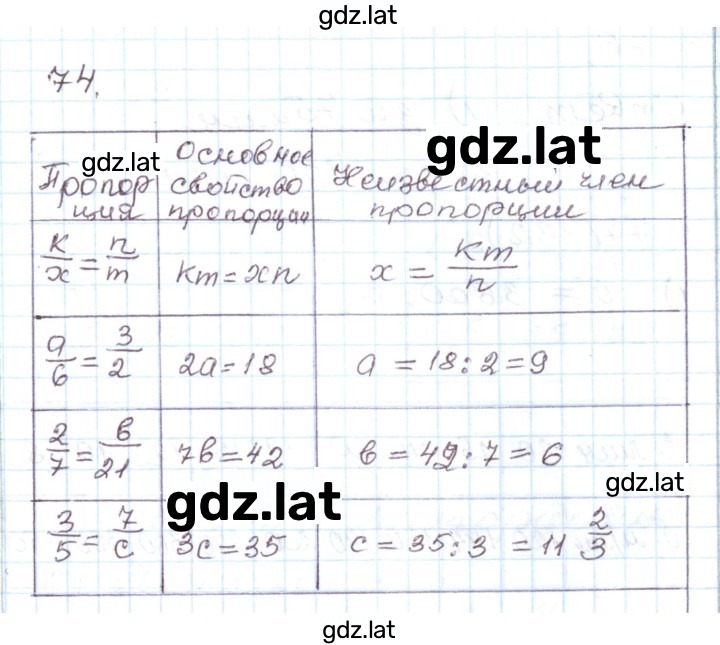 gdz.lat
74.
gdz.lat
gdz.lat
Пропор
ция
Основное
свойство
пропорции
Неизвестный член
пропорции
k/x = n/m
km = xn
x = km/n
a/6 = 3/2
2a = 18
a = 18 : 2 = 9
2/7 = в/21
7в = 42
в = 42 : 7 = 6
gdz.lat
gdz.lat
3/5 = 7/c
3c = 35
c = 35 : 3 = 11 2/3
gdz.lat